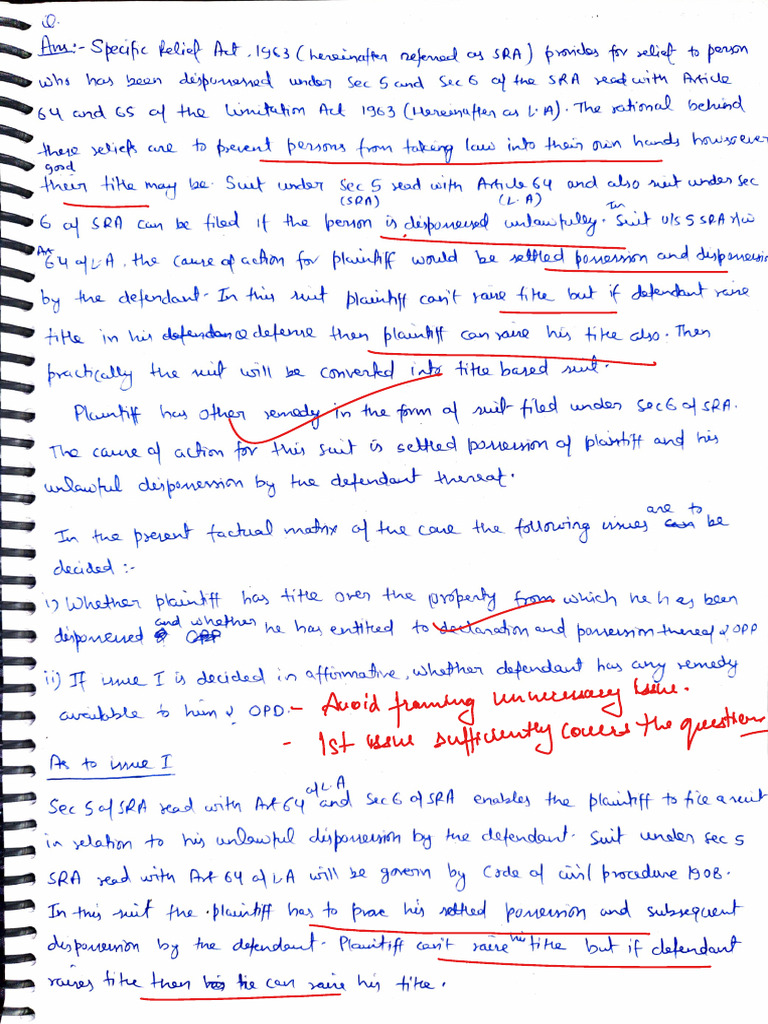 Q.
Ans:- Specific Relief Act, 1963 (hereinafter referred as SRA) provides for relief to person
who has been dispossessed under Sec 5 and Sec 6 of the SRA read with Article
64 and 65 of the Limitation Act 1963 (Hereinafter as L.A). The rational behind
these reliefs are to prevent persons from taking law into their own hands howsoever
good
their title may be. Suit under Sec 5 read with Article 64 and also suit under sec
(SRA) (L.A)
6 of SRA can be filed if the person is dispossessed unlawfully. In Suit u/s 5 SRA r/w
Art 64 of LA. the cause of action for plaintiff would be settled possession and dispossession
by the defendant. In this suit plaintiff can't raise title but if defendant raise
title in his defense then plaintiff can raise his title also. Then
practically the suit will be converted into title based suit.
Plaintiff has other remedy in the form of suit filed under sec 6 of SRA.
The cause of action for this suit is settled possession of plaintiff and his
unlawful dispossession by the defendant thereat.
In the present factual matrix of the case the following issues are to be
decided :-
i) Whether plaintiff has title over the property from which he has been
dispossessed and whether he has entitled to declaration and possession thereof OPP
ii) If issue I is decided in affirmative, whether defendant has any remedy
available to him OPD. - Avoid framing unnecessary issue.
- 1st issue sufficiently covers the question
As to issue I
Sec 5 of SRA read with Art 64 of L.A and Sec 6 of SRA enables the plaintiff to file a suit
in relation to his unlawful dispossession by the defendant. Suit under sec 5
SRA read with Art 64 of LA will be govern by Code of civil procedure 1908.
In this suit the plaintiff has to prove his settled possession and subsequent
dispossession by the defendant. Plaintiff can't raise his title but if defendant
raises title then he can raise his title.